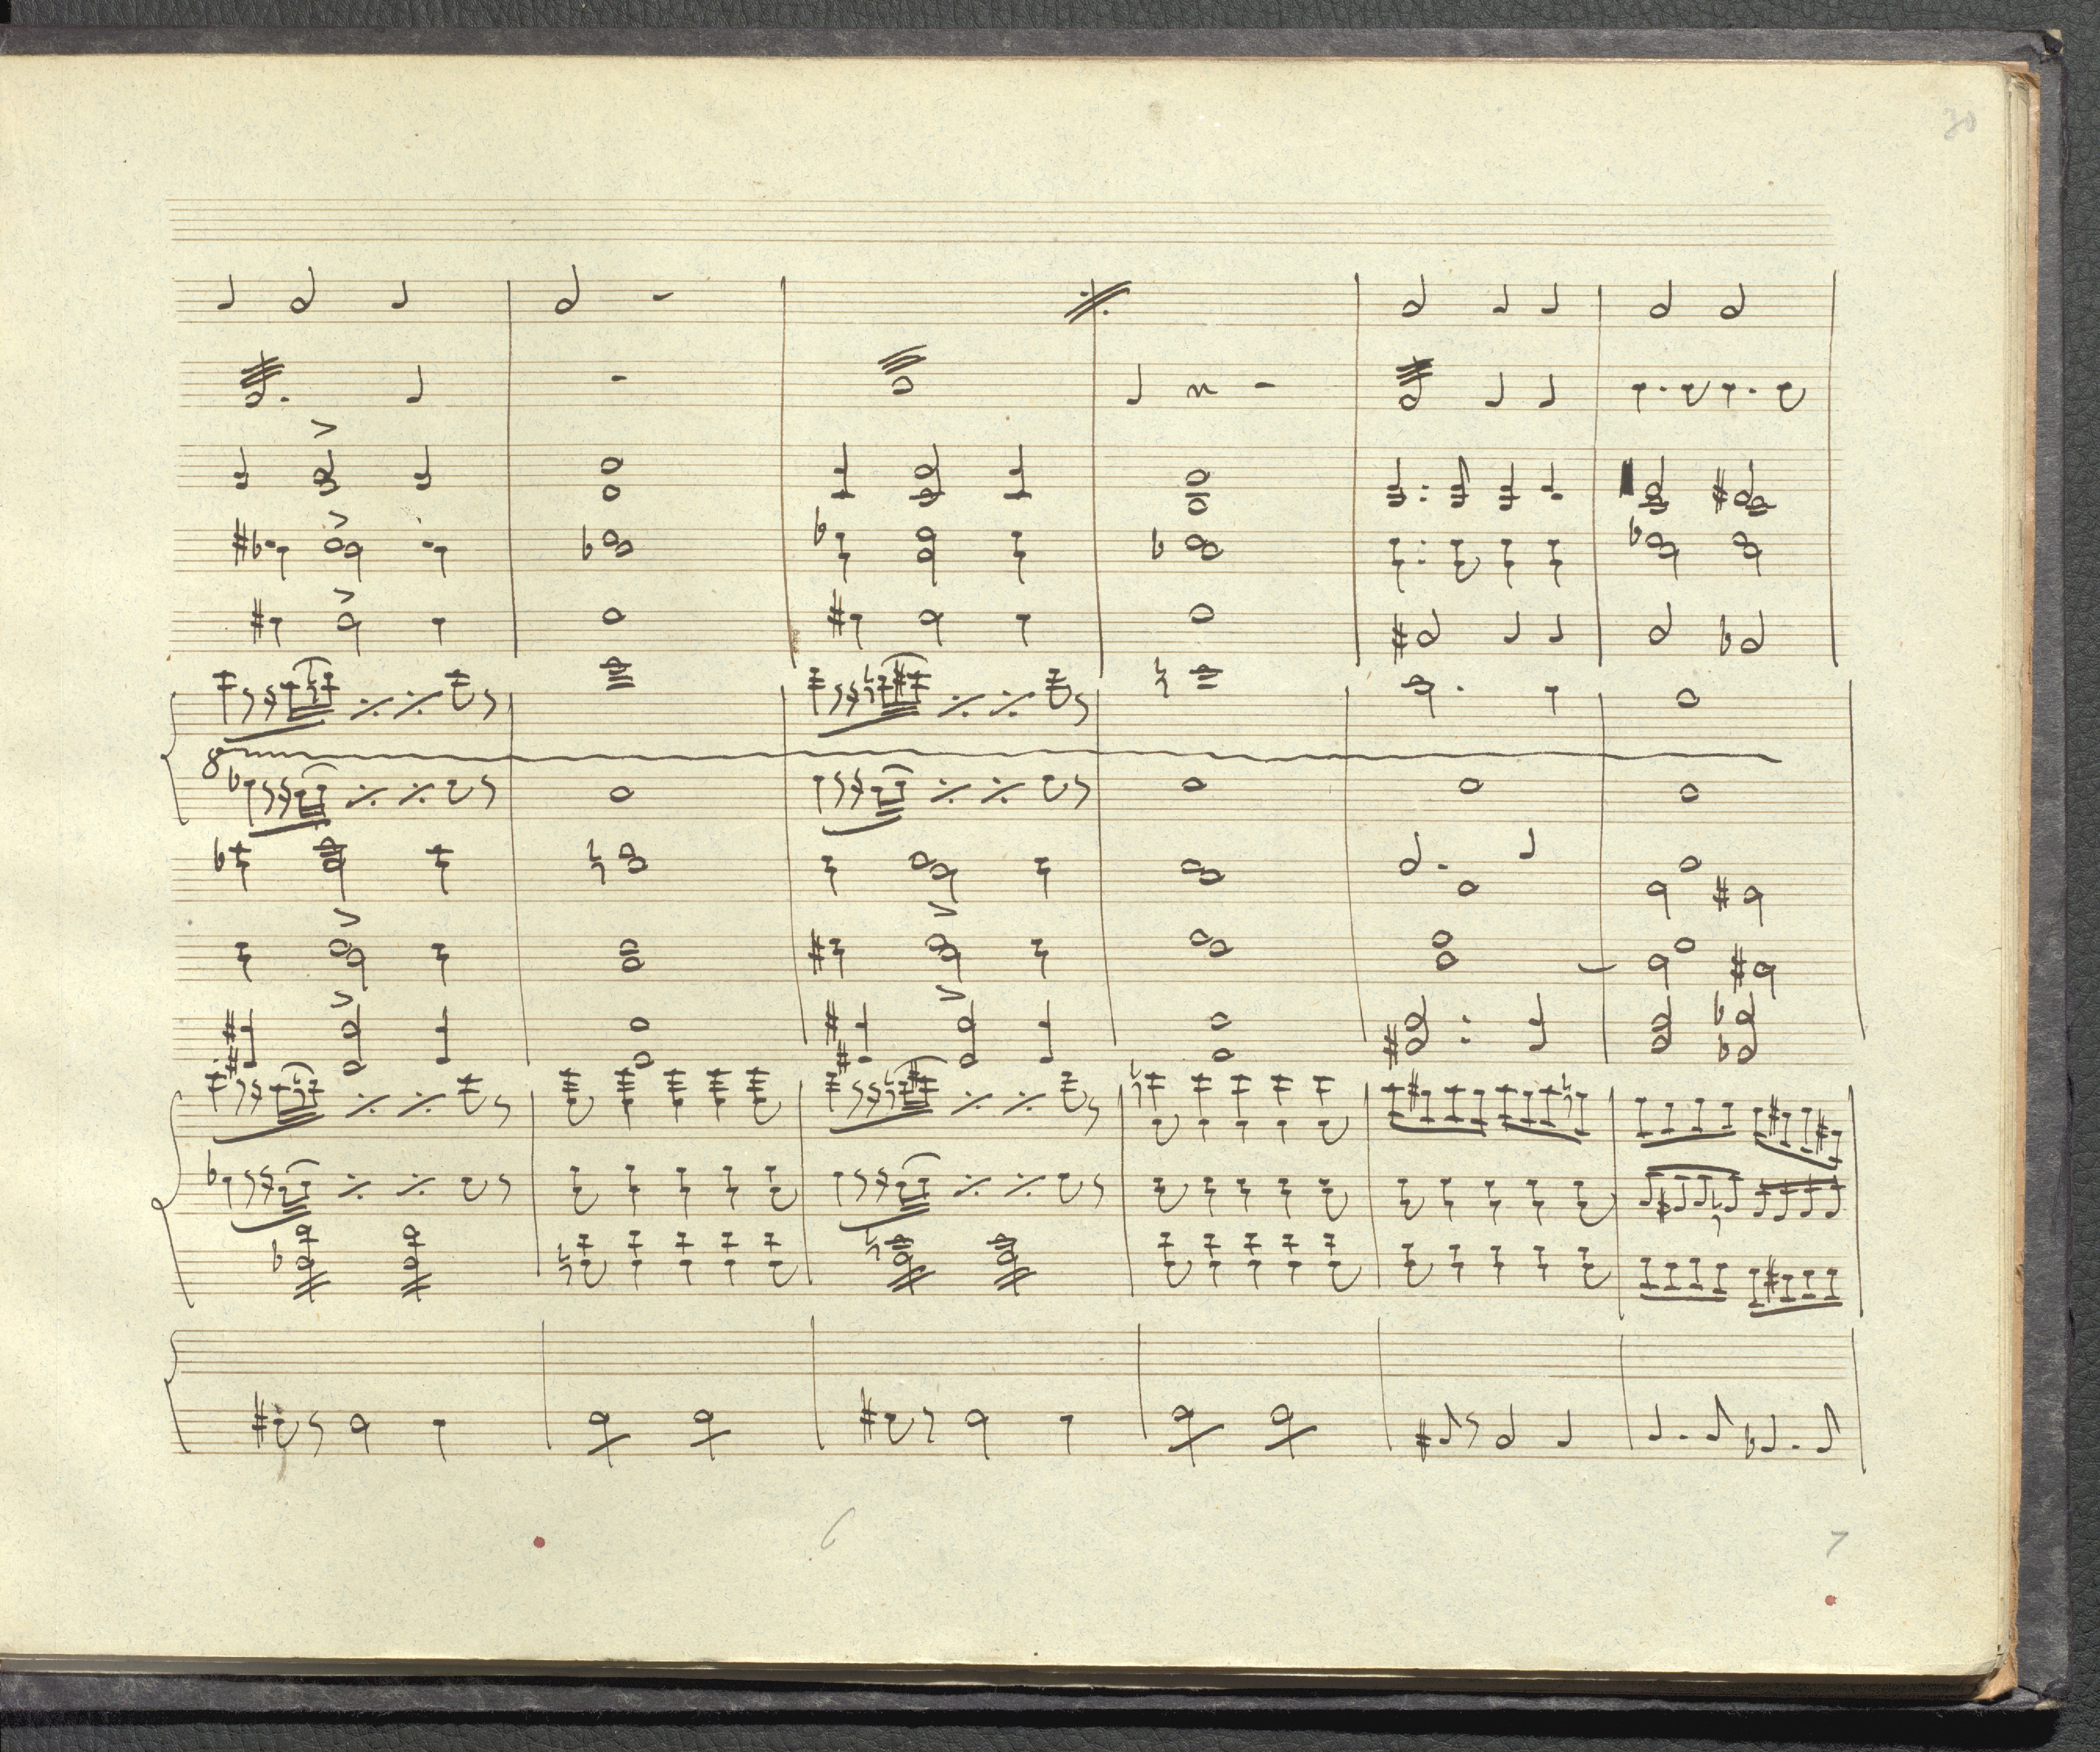 30
8
6
7